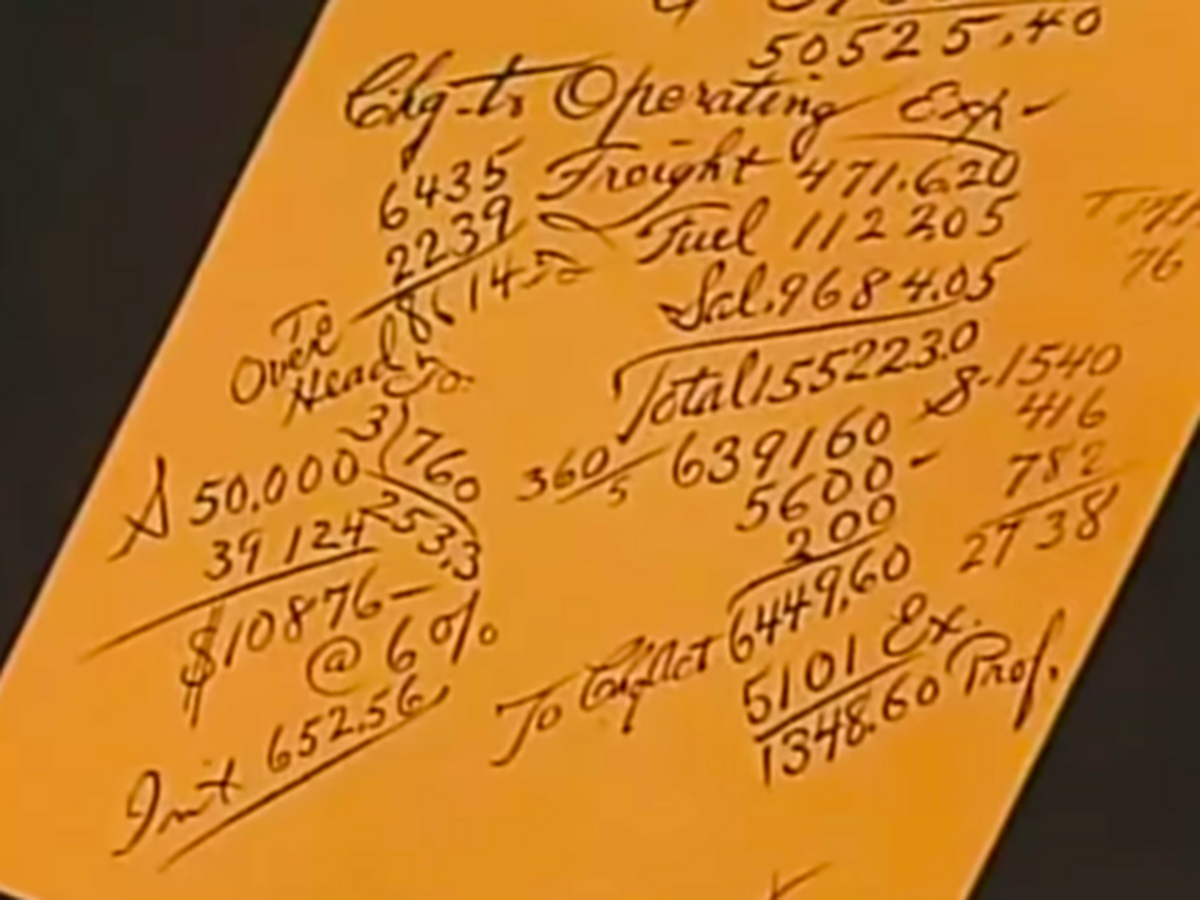 50525.40
Chg-to Operating Exp-
6435 Freight 471.620
2239 Fuel 112205
8614 Sal. 9684.05
To Over Head
Total 155223.0
3)760
253.3
$50,000
39124
$10876-
@ 6%
Int 652.56
360/5 639160
5600-
200
6449,60
5101 Ex.
1348.60 Prof.
To
S-1540
416
782
2738
76